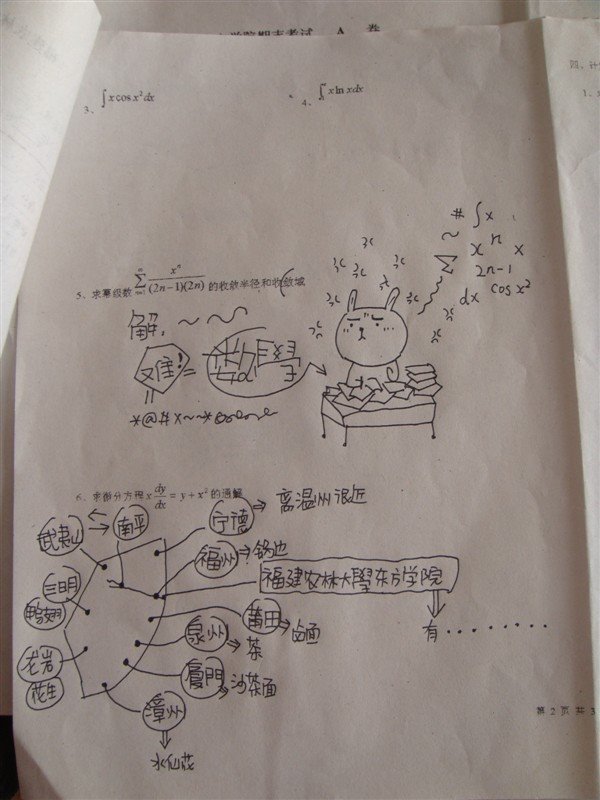 学院期末考试 A 卷
四、计
1、
3、∫ x cos x² dx
4、∫ x ln x dx
# ∫ x
~ xⁿ x
Σ 2n-1
dx cos x²
5、求幂级数 ∑ xⁿ/(2n-1)(2n) 的收敛半径和收敛域
解:~~~
又难! = 數學
*@#x~~*
6、求微分方程 x dy/dx = y + x² 的通解
武夷山 南平 宁德 ⇒ 离温州很近
福州 ⇒ 锅边
三明 福建农林大學东方学院
鸭翅 莆田 ⇒ 卤面 有.......
泉州 ⇒ 茶
龙岩 廈門 ⇒ 沙茶面
花生
漳州
水仙花
第 2 页 共 3